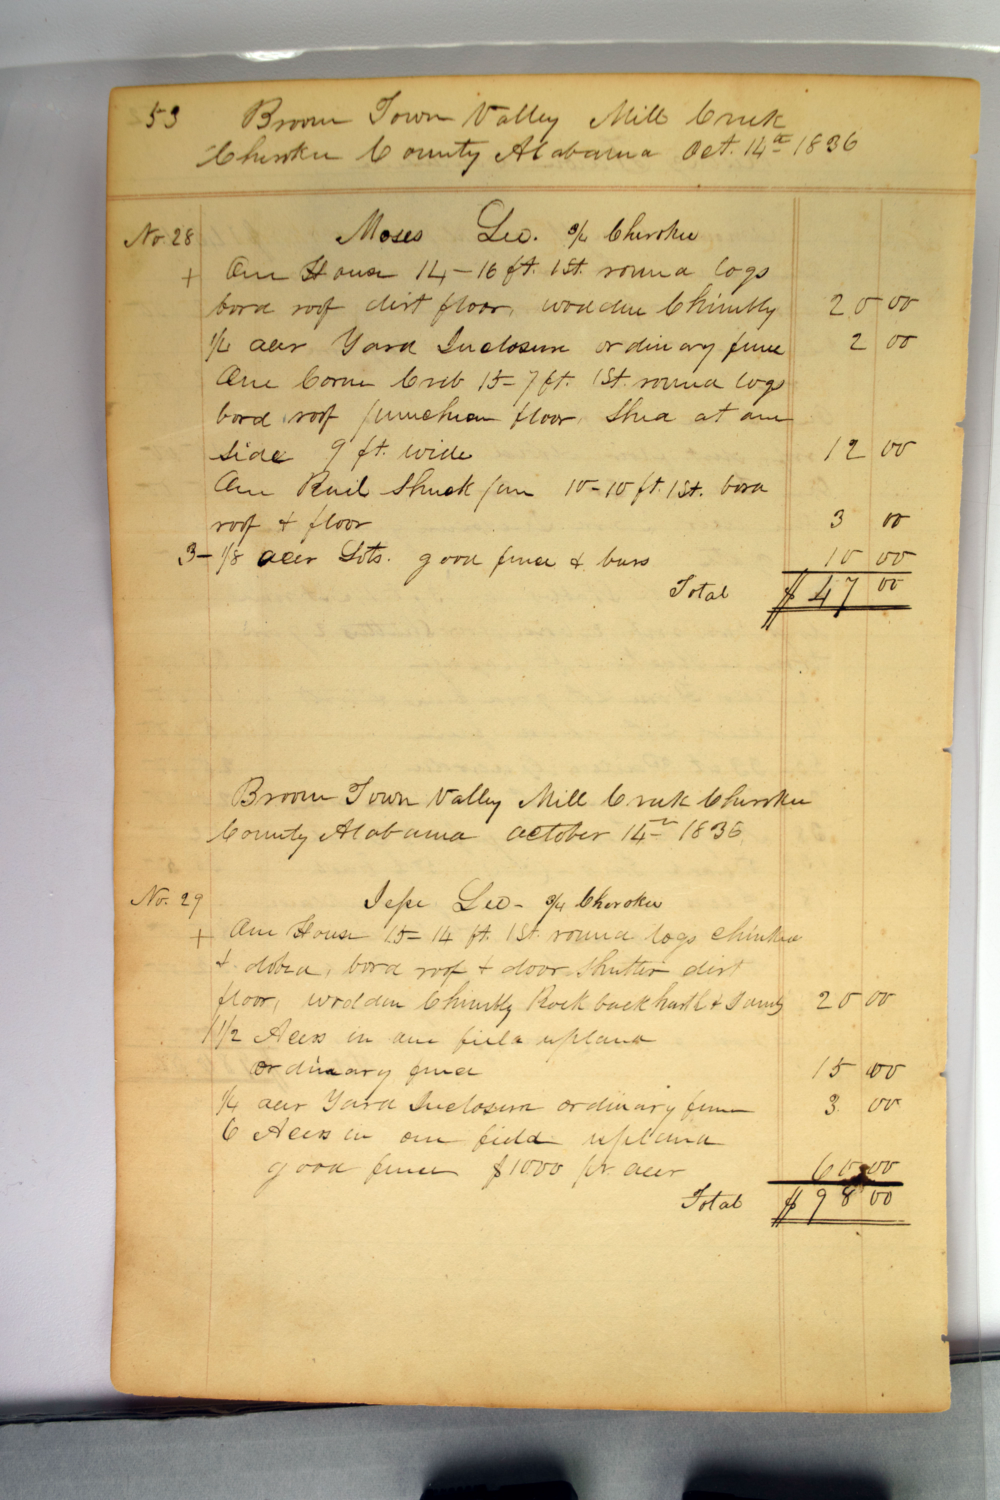 53 Broom Town Valley Mill Creek
Cherokee County Alabama Oct. 14th 1836
No 28 Moses Leo. 3/4 Cherokee
+ One House 14-16 ft. 1 St. round logs
bord roof dirt floor, wooden Chimbly 20 00
1/4 acer Yard Inclosure ordinary fence 2 00
One Corn Creb 15-7 ft. 1 St. round logs
bord roof punchean floor, Shed at one
side 9 ft. wide 12 00
One Rail Shuck pen 10-10 ft. 1 St. bord
roof & floor 3 00
3-1/8 acer Lots. good fence & bars 10 00
Total $ 47 00
Broom Town Valley Mill Creek Cherokee
County Alabama October 14th 1836
No. 29 Jesse Leo - 3/4 Cherokee
+ One House 15-14 ft. 1 St. round logs chinked
& dobed, bord roof & door Shutter dirt
floor, wodden Chimbly Rock back harth & Jambs 20 00
1 1/2 Acers in one field upland
ordinary fence 15 00
1/4 acer Yard Inclosure ordinary fence 3 00
6 Acers in one field upland
good fence $10 00 pr. acer 60 00
Total $ 98 00